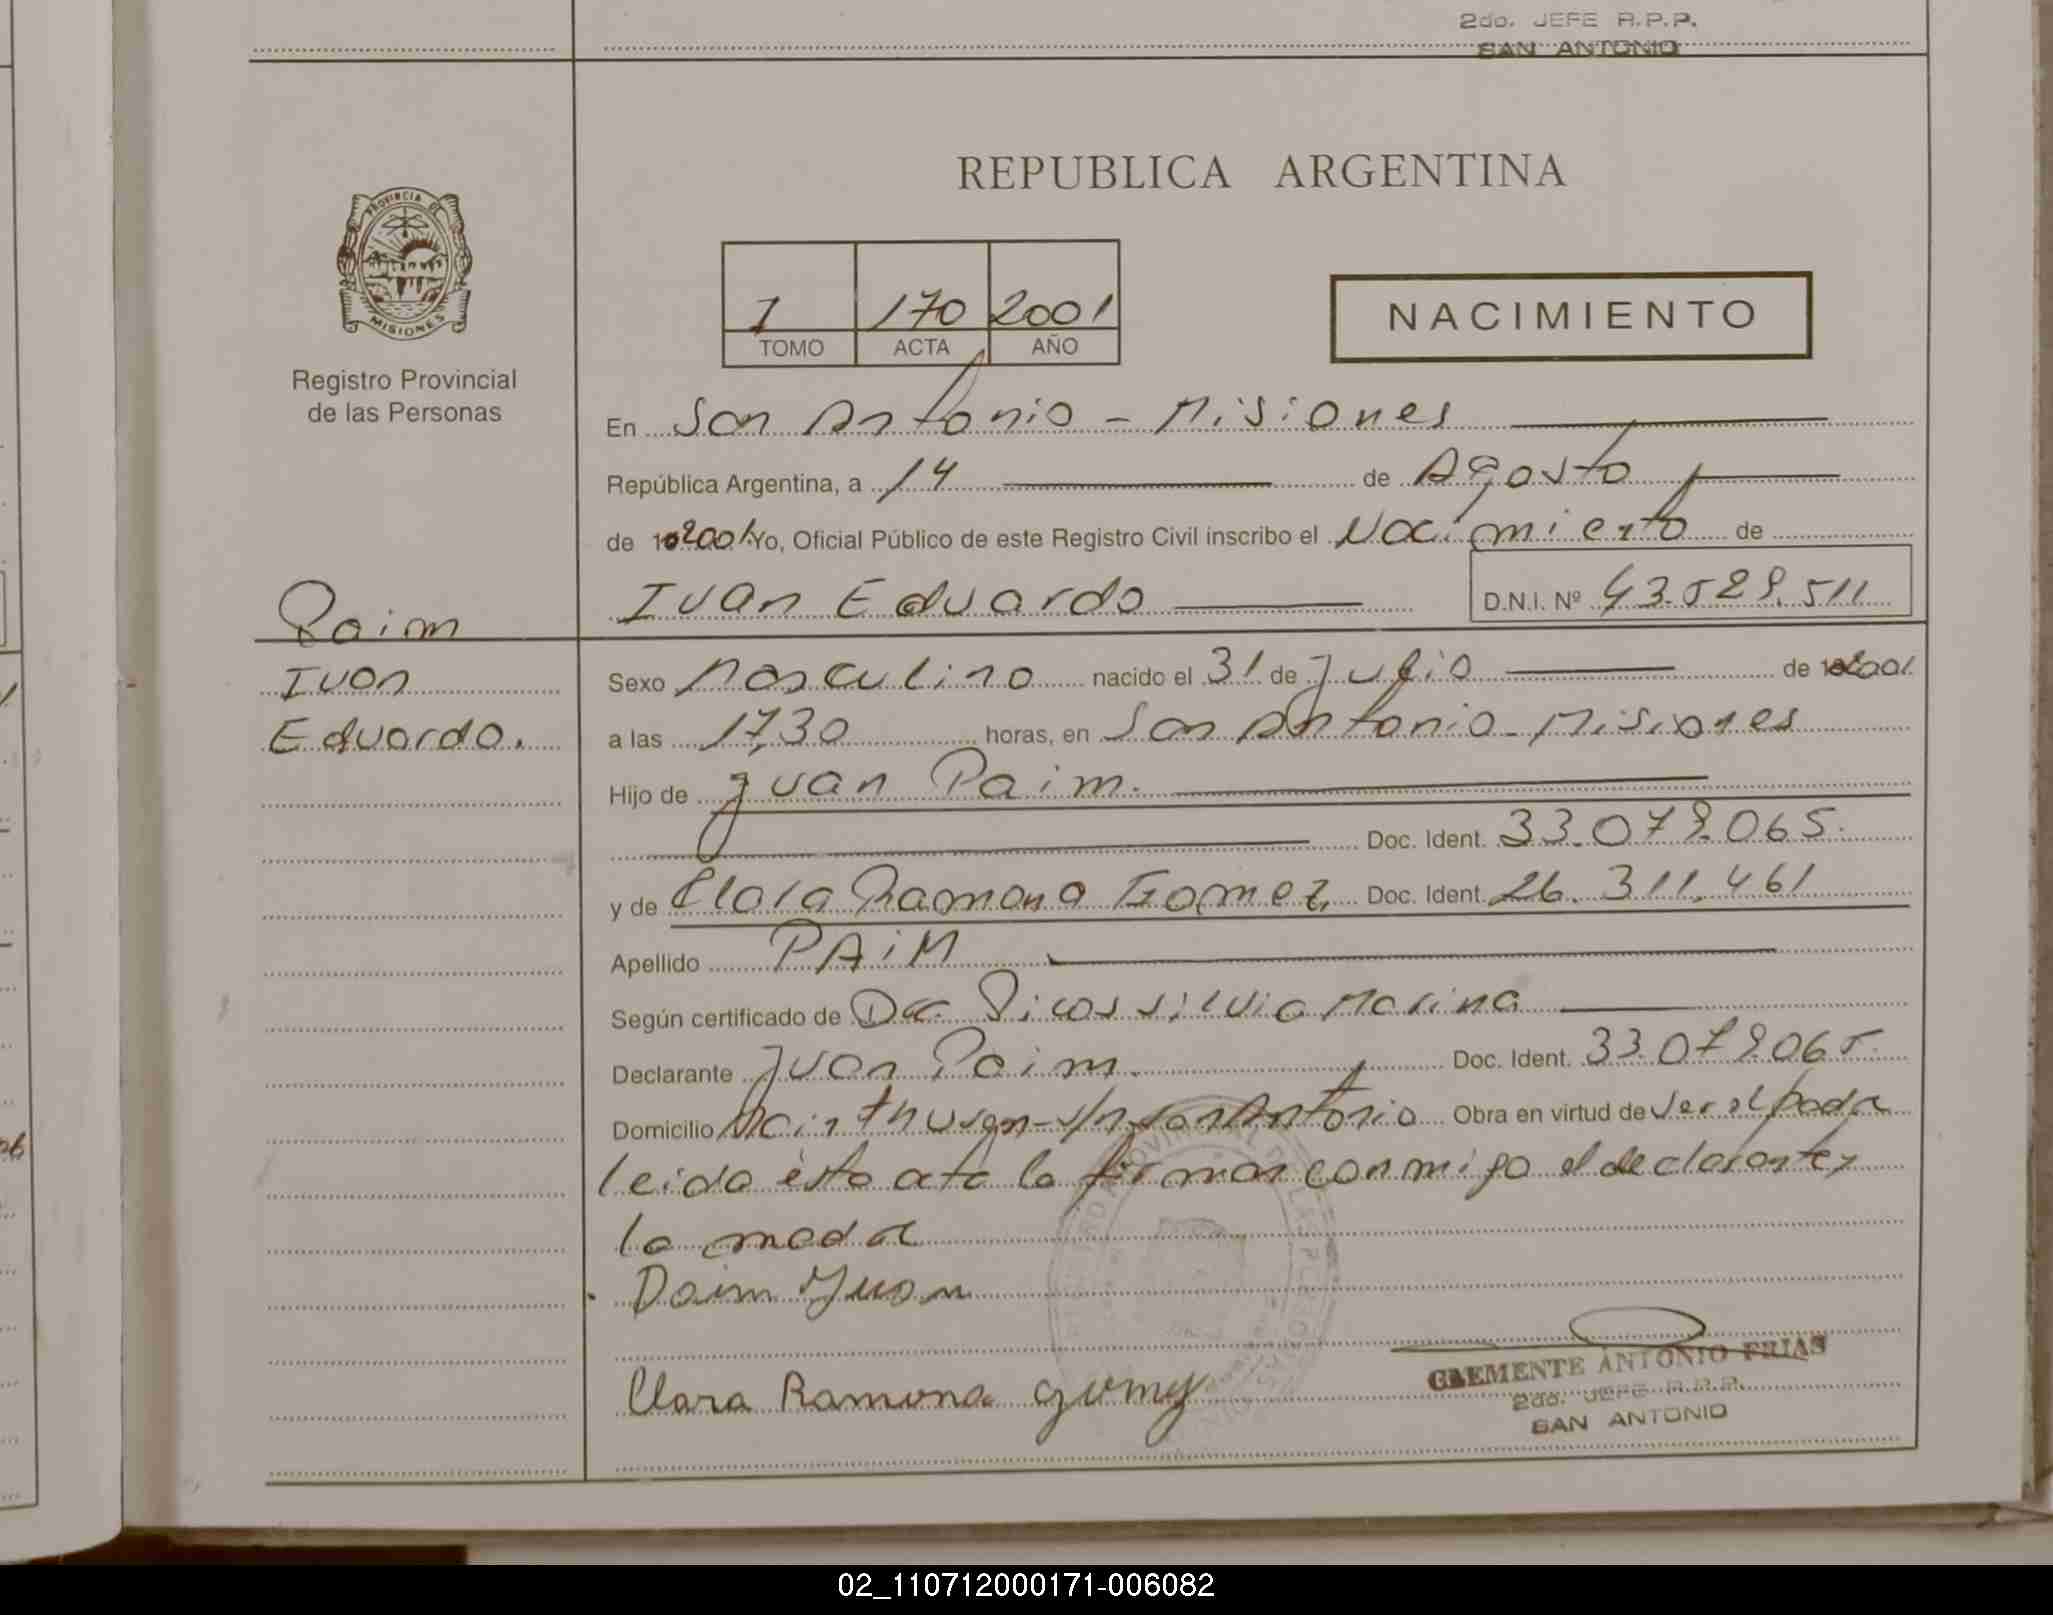 2do. JEFE R.P.P.
SAN ANTONIO
PROVINCIA DE
MISIONES
Registro Provincial
de las Personas
REPUBLICA ARGENTINA
1 170 2001
TOMO ACTA AÑO
NACIMIENTO
En San Antonio - Misiones
República Argentina, a 14 de Agosto
de 2001 Yo, Oficial Público de este Registro Civil inscribo el Nacimiento de
Ivan Eduardo D.N.I. Nº 43.529.511
Paim
Ivan
Eduardo.
Sexo Masculino nacido el 31 de Julio de 2001
a las 17,30 horas, en San Antonio - Misiones
Hijo de Juan Paim.
Doc. Ident. 33.079.065.
y de Clara Ramona Gomez Doc. Ident. 26.311.461
Apellido PAIM
Según certificado de Dra. Picos Silvia Marina
Declarante Juan Paim. Doc. Ident. 33.079.065.
Domicilio s/n San Antonio Obra en virtud de ser el padre
leida ésta acta la firman conmigo el declarante y
la madre
Paim Juan
Clara Ramona
CLEMENTE ANTONIO FRIAS
2do. JEFE R.P.P.
SAN ANTONIO
02_110712000171-006082